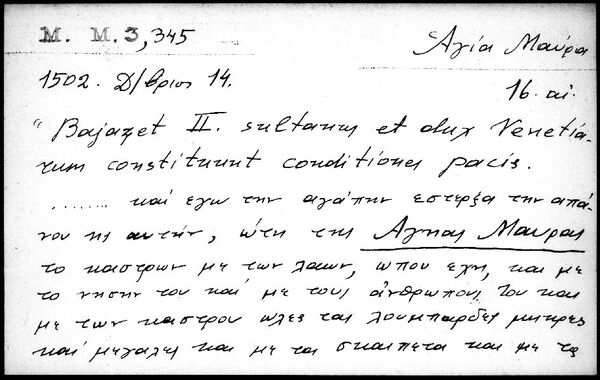 M. M. 3, 345
Αγία Μαύρα
1502. Δ/βριος 14.
16. αι.
"Bajazet II. sultanus et dux Venetia-
rum constituunt conditiones pacis.
........ και εγω την αγάπην εστερξα την απά-
νου εις αυτήν, ώτι της Αγιας Μαυρας
το καστρων με των λαων, ωπου εχη, και με
το νησην του και με τους ανθρωπους του και
με των καστρου ωλες ται λουμπαρδες μικρες
και μεγαλες και με τα σκαιπετα και με τες